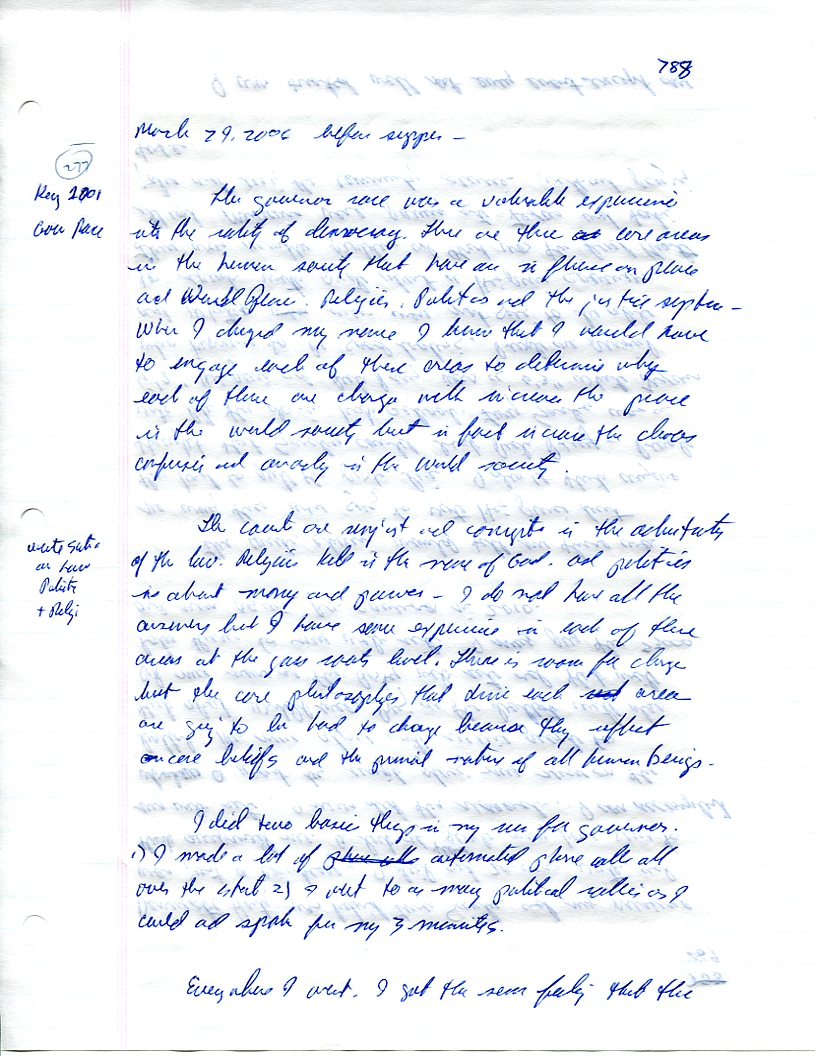 788
March 29, 2006 before supper -
277
Key 2001
Gov Race
The governor race was a valuable experience
into the reality of democracy. There are three core areas
in the human society that have an influence on peace
and World Peace. Religion, Politics and the justice system -
When I changed my name I knew that I would have
to engage each of these areas to determine why
each of these are charge with increase the peace
in the world society but in fact increase the chaos
confusion and anarchy in the world society.
The courts are unjust and corrupt in the
of the law. Religions kill in the name of God. and politics
is about money and power - I do not have all the
answers but I have some experience in each of these
areas at the grass roots level. There is room for change
but the core philosophies that drive each area
are going to be hard to change because they reflect
core beliefs and the primal nature of all human beings.
write
on Law
Politics
+ Religi
I did two basic things in my run for governor.
1) I made a lot of phone calls automated phone calls all
over the state 2) I went to as many political rallies as I
could and spoke for my 3 minutes.
Everywhere I went. I got the same feeling that the